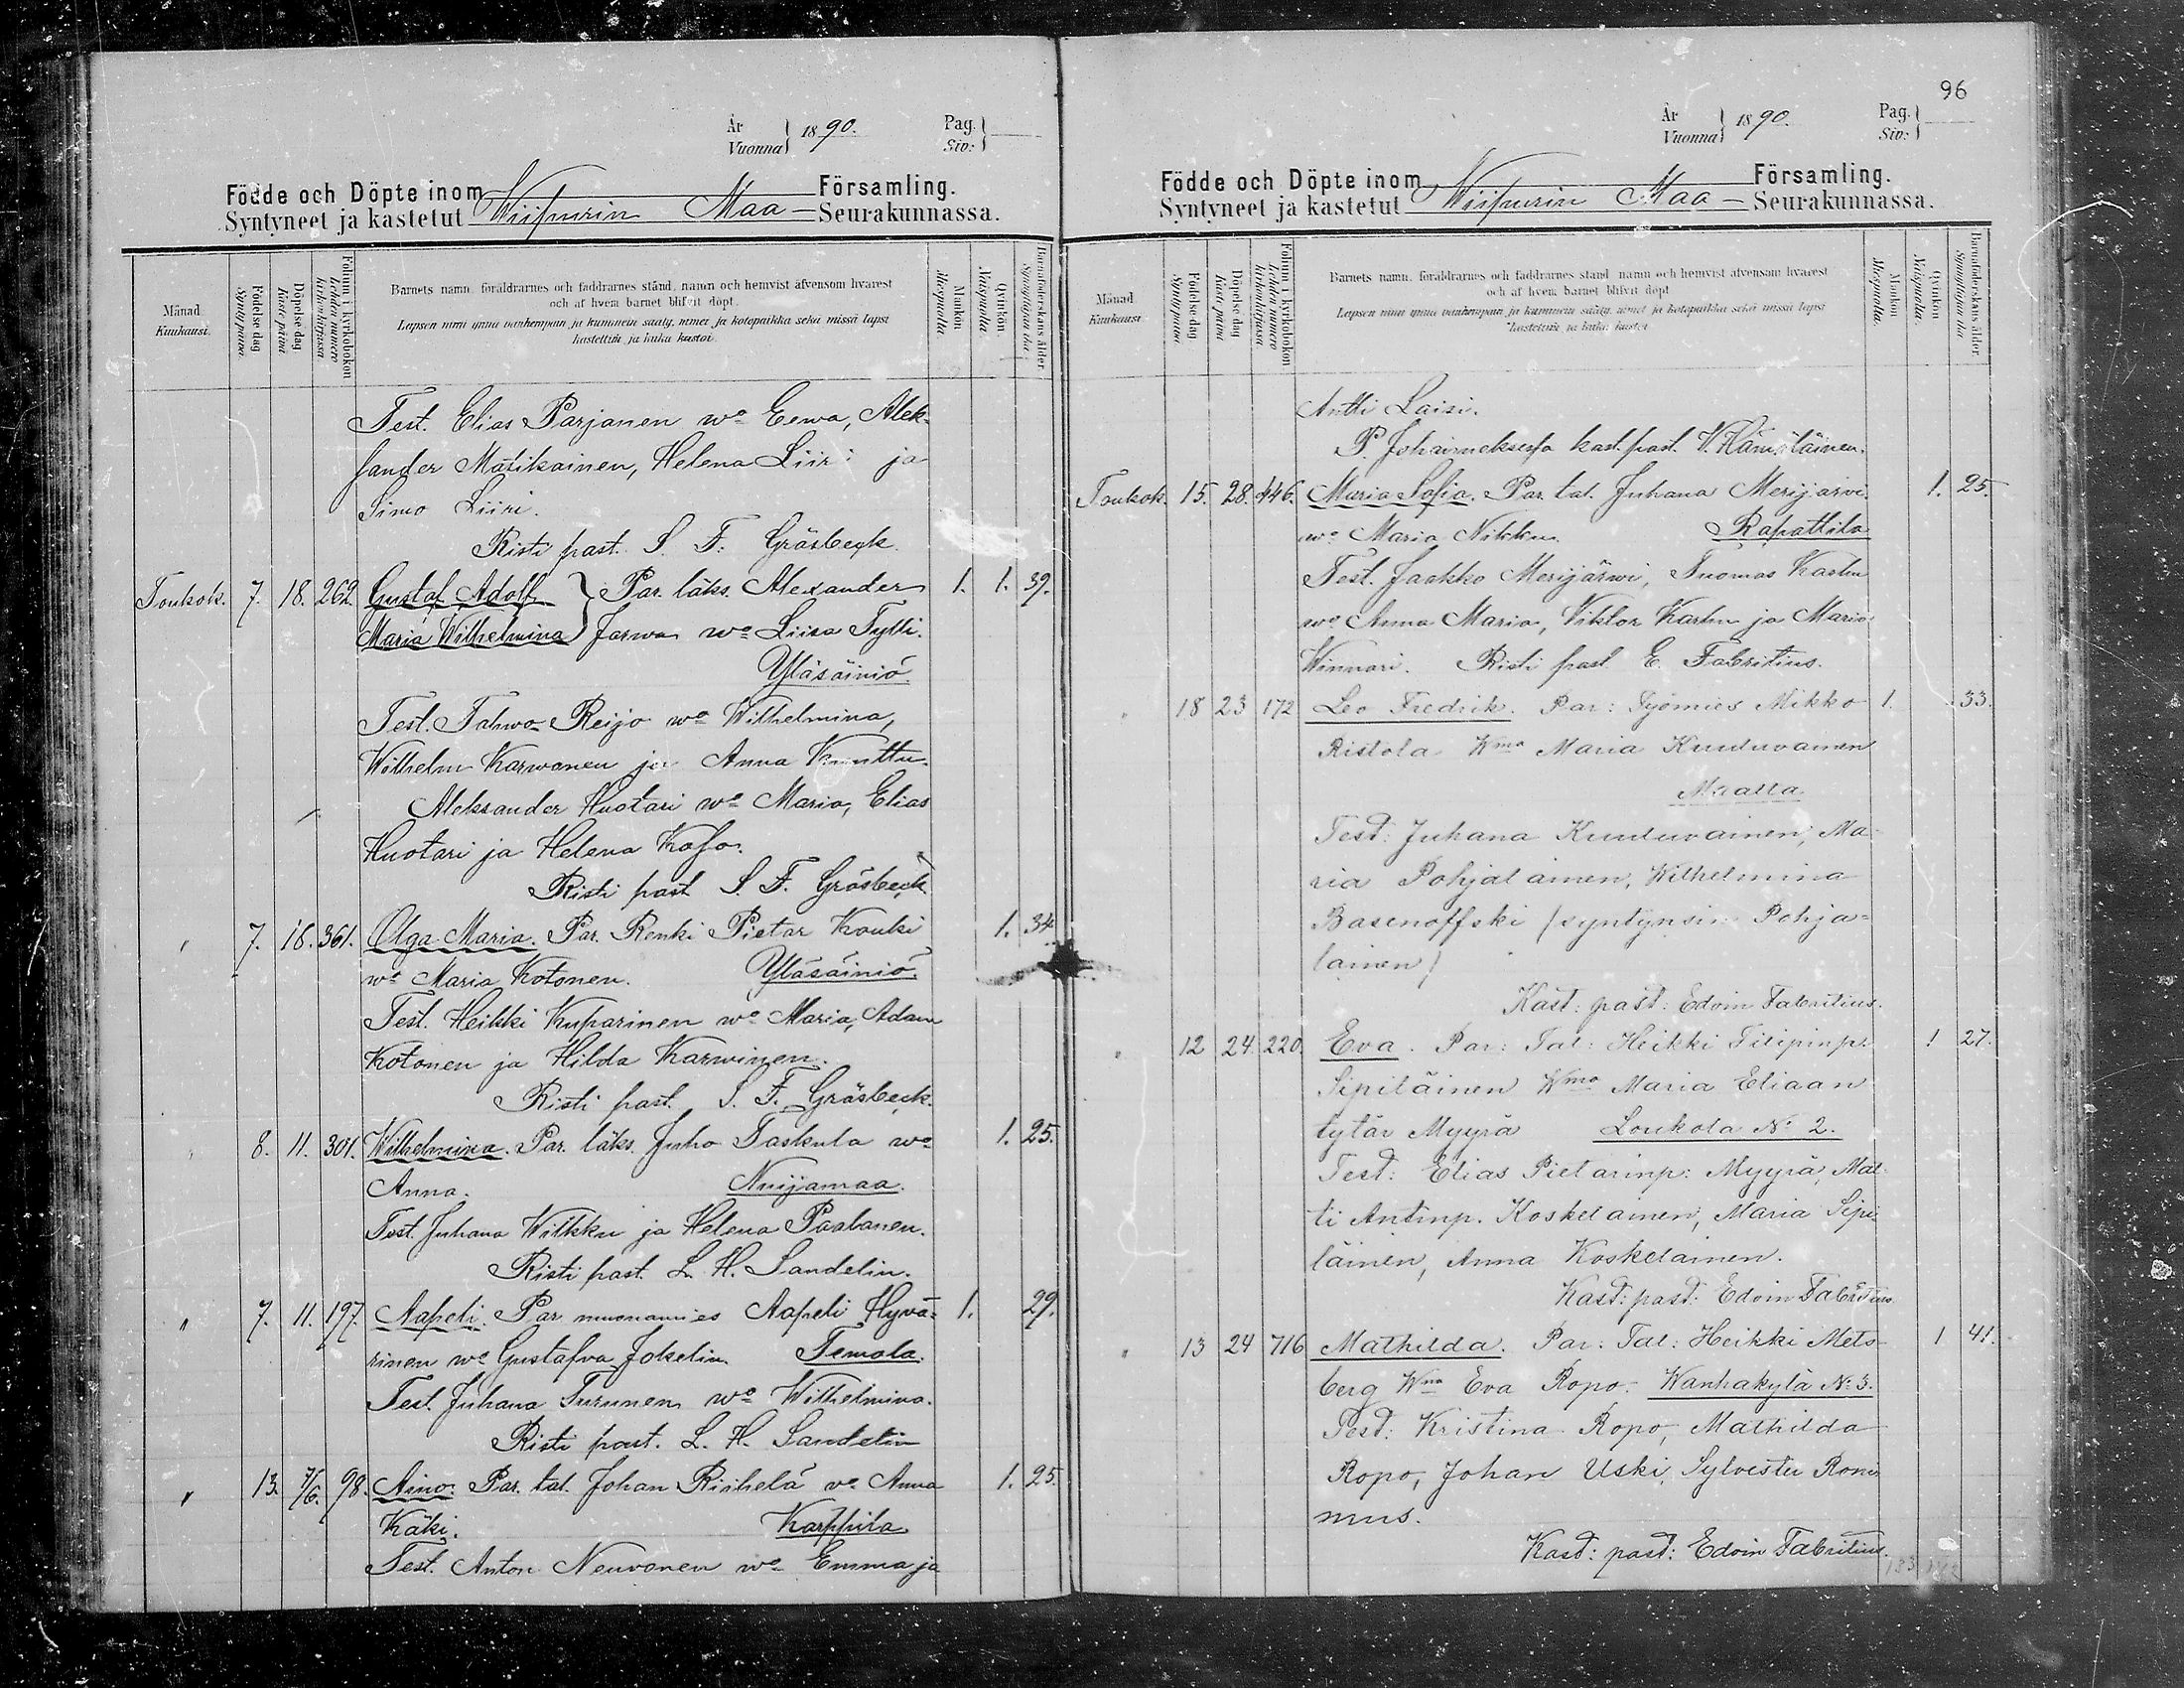 År
Vuonna } 1890.
Pag.
Siv: }
Födde och Döpte inom Församling.
Syntyneet ja kastetut Wiipurin Maa- Seurakunnassa.
Månad
Kuukausi.
Födelsedag
Syntypäivä.
Döpelsedag
Kaste päivä
Folium i kyrkoboken
Lehden numero kirkonkirjassa
Barnets namn, föräldrarnes och faddrarnes stånd, namn och hemvist äfvensom hvarest
och af hvem barnet blifvit döpt.
Lapsen nimi ynnä vanhempain ja kummein sääty, nimet ja kotopaikka sekä missä lapsi
kastettiin ja kuka kastoi.
Mankön
Miespuolta.
Qvinkön.
Naispuolta.
Barnaföderskans ålder.
Synnyttäjän ikä
Test. Elias Parjanen wo Eewa, Alek-
sander Matikainen, Helena Liiri ja
Simo Liiri.
Risti past. S. F. Gräsbeck.
Toukok. 7. 18. 262. Gustaf Adolf } Par. läks. Alexander 1. 1. 39.
Maria Wilhelmina } Jarwa wo Liisa Tylli.
Yläsäiniö
Test. Tahwo Reijo wo Wilhelmina,
Wilhelm Karwanen ja Anna Knuttu.
Aleksander Huotari wo Maria, Elias
Huotari ja Helena Koso.
Risti past S. F. Gräsbeck.
" 7. 18. 361. Olga Maria. Par. Renki Pietar Kouki 1. 34.
wo Maria Kotonen. Yläsäiniö.
Test. Heikki Kuparinen wo Maria, Adam
Kotonen ja Hilda Karwinen.
Risti past. S. F. Gräsbeck.
" 8. 11. 301. Wilhelmina. Par. läks. Juho Taskula wo 1. 25.
Anna. Nuijamaa.
Test. Juhana Wilkku ja Helena Paalanen.
Risti past. L. H. Sandelin.
" 7. 11. 197. Aapeli. Par muonamies Aapeli Hyvä- 1. 29.
rinen wo Gustafva Jokelin. Temola.
Test. Juhana Turunen wo Wilhelmina.
Risti past. L. H. Sandelin
" 13. 7/6. 98. Aino. Par. tal. Johan Riihelä vo Anna 1. 25.
Käki. Karppila.
Test. Anton Neuvonen wo Emma ja
96
År
Vuonna } 1890.
Pag.
Siv: }
Födde och Döpte inom Församling.
Syntyneet ja kastetut Wiipurin Maa- Seurakunnassa.
Månad
Kuukausi.
Födelsedag
Syntypäivä.
Döpelsedag
Kaste päivä
Folium i kyrkoboken
Lehden numero kirkonkirjassa
Barnets namn, föräldrarnes och faddrarnes stånd, namn och hemvist äfvensom hvarest
och af hvem barnet blifvit döpt
Lapsen nimi ynnä vanhempain ja kummein sääty, nimet ja kotopaikka sekä missä lapsi
kastettiin ja kuka kastoi
Mankön
Miespuolta.
Qvinkön
Naispuolta.
Barnaföderskans ålder.
Synnyttäjän ikä
Antti Laisi.
P. Johanneksessa kast. past. V. Hämäläinen.
Toukok. 15. 28. 446. Maria Sofia. Par. tal. Juhana Merijärvi 1. 25.
wo Maria Nikku. Rapattila
Test. Jaakko Merijärwi, Tuomas Karhu
wo Anna Maria, Viktor Karhu ja Maria
Winnari. Risti past E. Fabritius.
" 18 23 172 Leo Fredrik. Par: Työmies Mikko 1. 33.
Ristola Wmo Maria Kuuluvainen
Maalla
Test: Juhana Kuuluvainen, Ma-
ria Pohjalainen, Wilhelmina
Basenoffski (syntynsin Pohja=
lainen)
Kast: past: Edvin Fabritius.
" 12 24 220. Eva. Par: Tal: Heikki Filipinp. 1 27.
Sipiläinen Wmo Maria Eliaan
tytär Myyrä Loukola No 2.
Test: Elias Pietarinp: Myyrä, Mat-
ti Antinp. Koskelainen, Maria Sipi-
läinen, Anna Koskelainen.
Kast: past: Edvin Fabritius
" 13 24 716 Mathilda. Par: Tal: Heikki Mets- 1 41.
berg Wmo Eva Ropo. Wanhakylä No 3.
Test: Kristina Ropo, Mathilda
Ropo, Johan Uski, Sylvester Roni-
mus.
Kast: past: Edvin Fabritius.